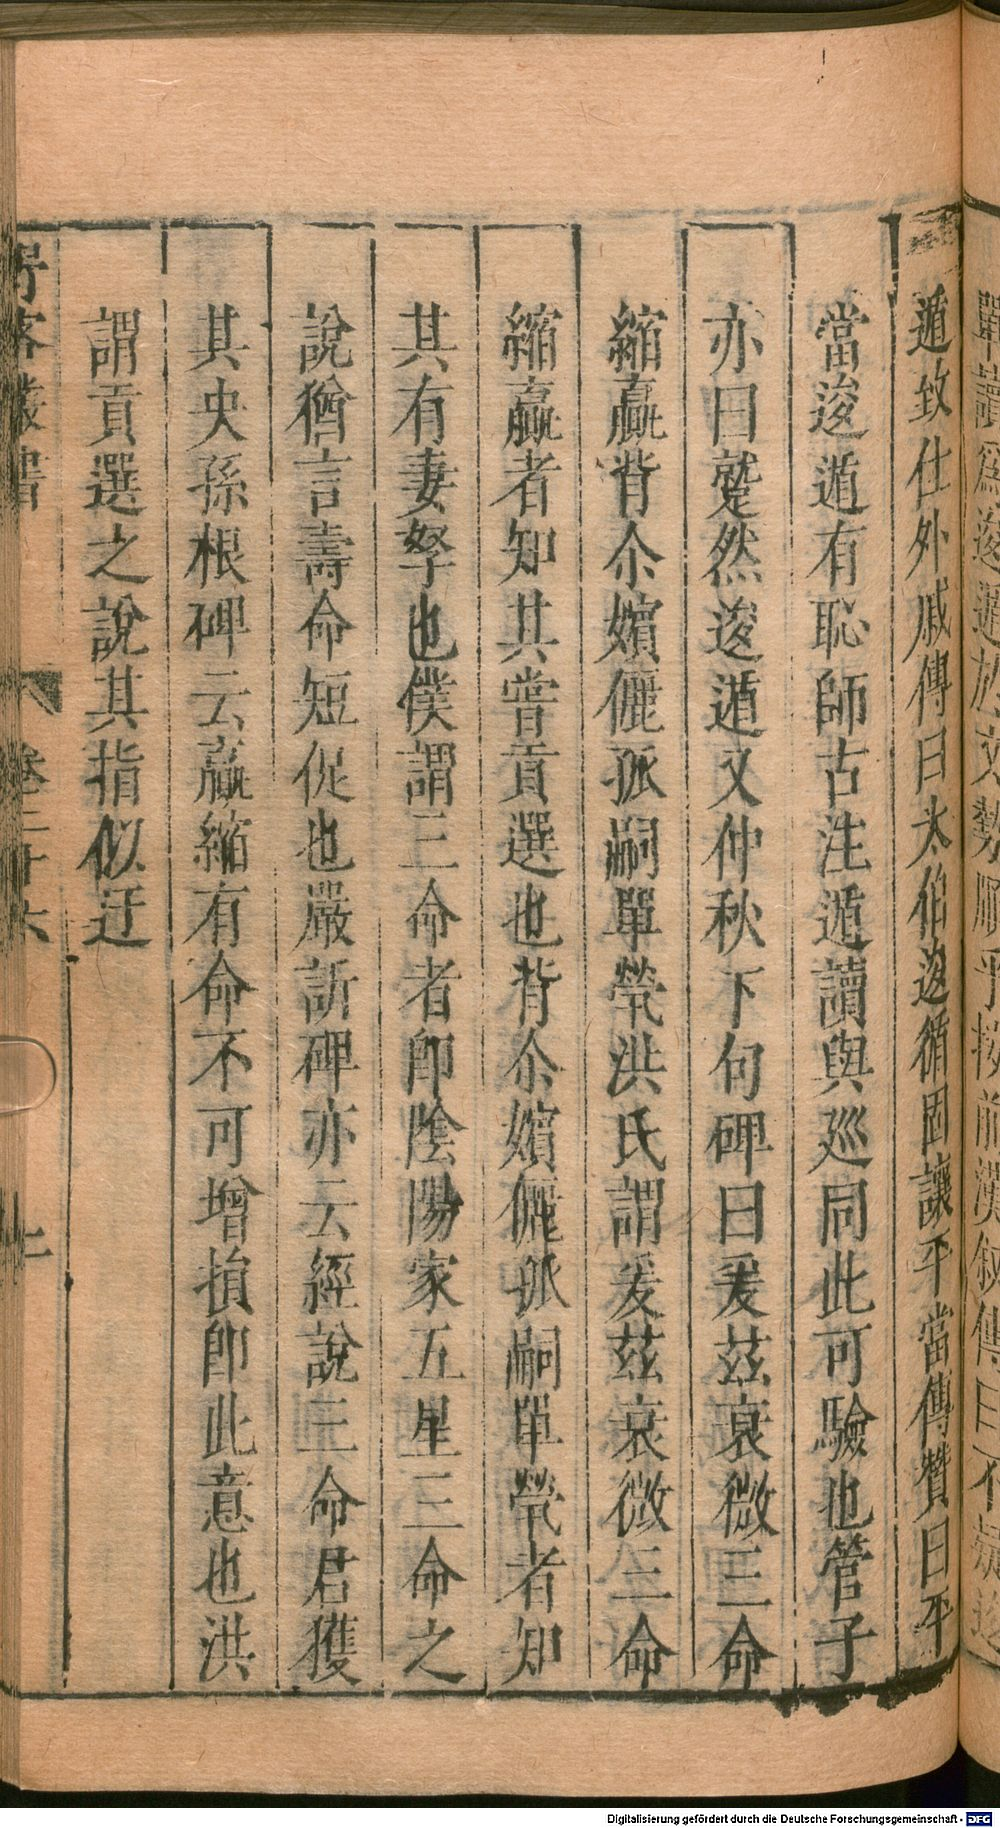 遁致仕外戚傳曰太伯逡循固讓平當傳贊曰平
當逡遁有恥師古注遁讀與巡同此可驗也管子
亦曰蹵然逡遁又仲秋下旬碑曰爰茲衰微三命
縮贏背尒嬪儷孤嗣單煢洪氏謂爰茲衰微三命
縮贏者知其嘗貢選也背尒嬪儷孤嗣單煢者知
其有妻孥也僕謂三命者卽陰陽家五星三命之
說猶言壽命短促也嚴訢碑亦云經說三命君獲
其央孫根碑云贏縮有命不可增損卽此意也洪
謂貢選之說其指似迂
客叢書
卷二十六
Digitalisierung gefördert durch die Deutsche Forschungsgemeinschaft - DFG